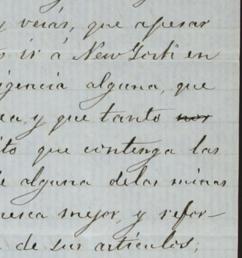 y verás, que apesar
ir á New York en
igencia alguna, que
ea, y que tanto nos
ito que contenga las
e alguna delas minas
uesca mejor, y refor-
a de sus artículos;